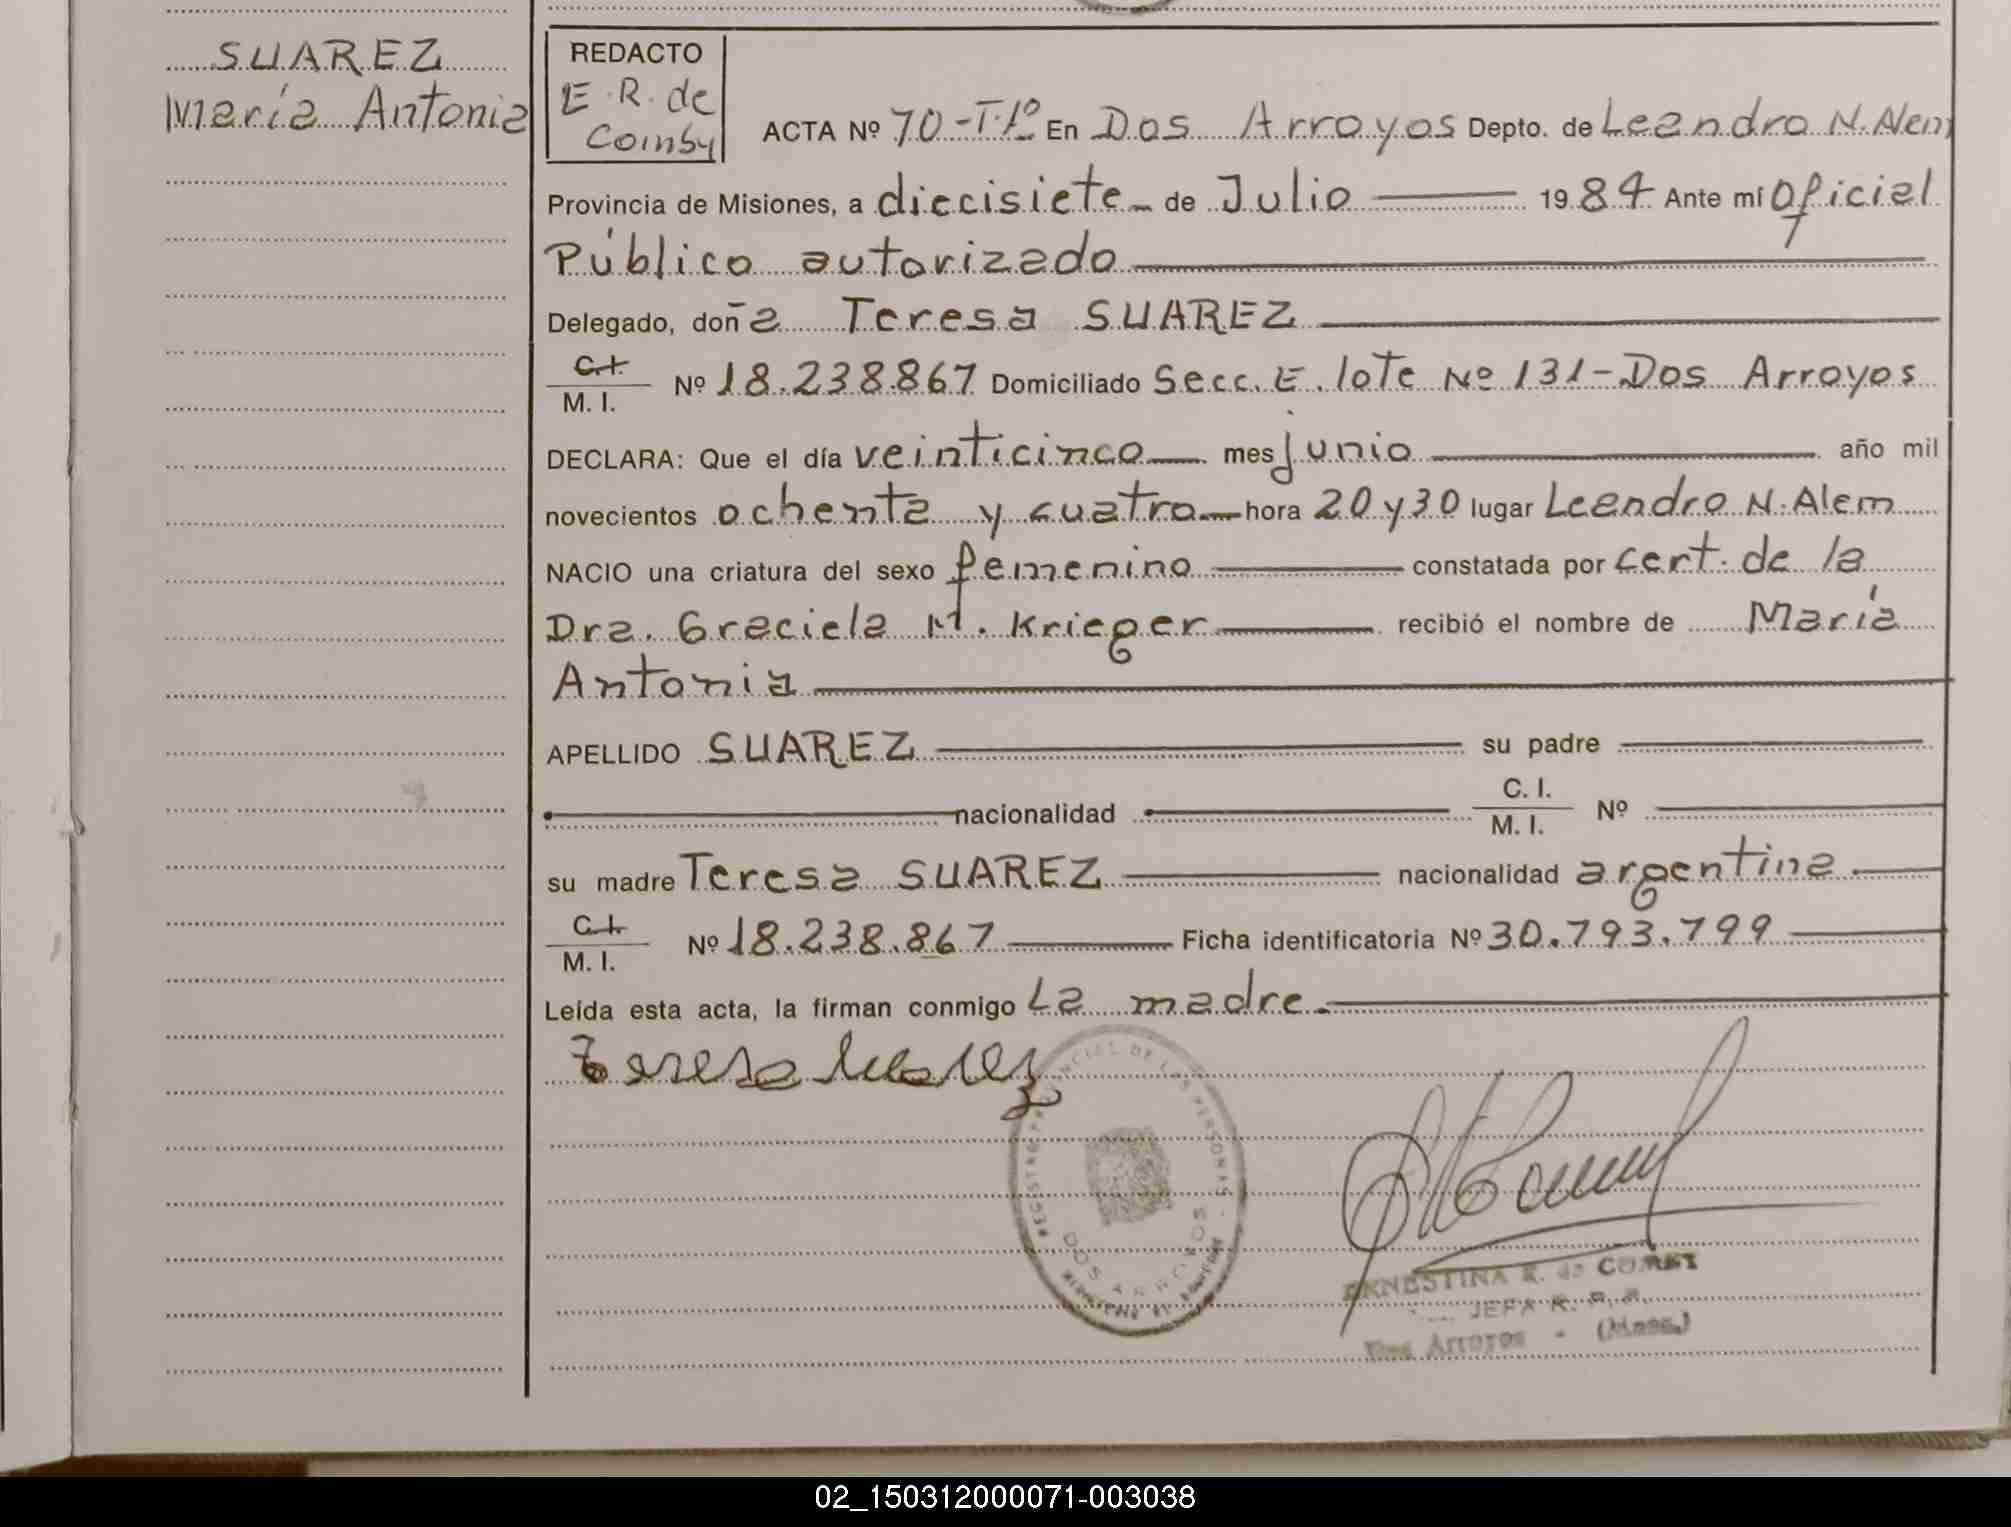 SUAREZ
María Antonia
REDACTO
E. R. de
Coinsy
ACTA Nº 70-T.1º En Dos Arroyos Depto. de Leandro N. Alem
Provincia de Misiones, a diecisiete de Julio 1984 Ante mí Oficial
Público autorizado
Delegado, doña Teresa SUAREZ
C.I.
M. I. Nº 18.238.867 Domiciliado Secc. E. lote Nº 131-Dos Arroyos
DECLARA: Que el día veinticinco mes junio año mil
novecientos ochenta y cuatro hora 20 y 30 lugar Leandro N. Alem
NACIO una criatura del sexo femenino constatada por cert. de la
Dra. Graciela M. Krieger recibió el nombre de María
Antonia
APELLIDO SUAREZ su padre
nacionalidad C. I.
M. I. Nº
su madre Teresa SUAREZ nacionalidad argentina
C.I.
M. I. Nº 18.238.867 Ficha identificatoria Nº 30.793.799
Leída esta acta, la firman conmigo La madre.
Teresa Suarez
REGISTRO PROVINCIAL DE LAS PERSONAS
DOS ARROYOS
ERNESTINA R. de
JEFA R. P. P.
Dos Arroyos - (Mnes.)
02_150312000071-003038